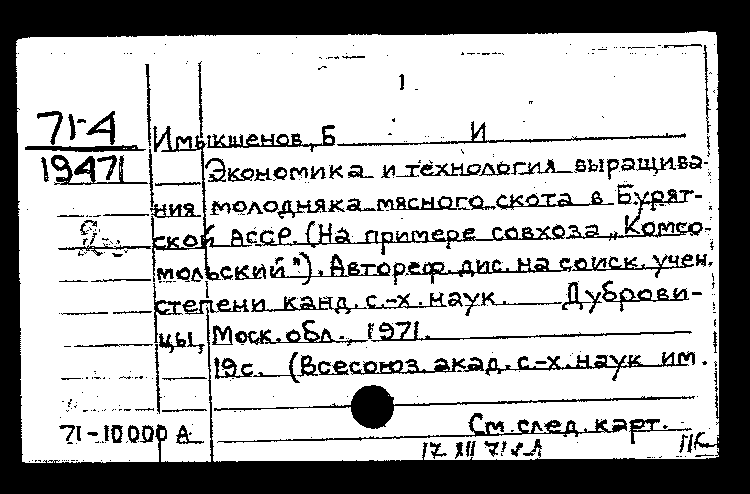 1
71-4
19471
Имыкшенов, Б И
Экономика и технология выращива-
ния молодняка мясного скота в Бурят-
ской АССР. (На примере совхоза „Комсо-
мольский"). Автореф. дис. на соиск. учен.
степени канд. с.-х. наук. Дуброви-
цы, Моск. обл., 1971.
19 с. (Всесоюз. акад. с.-х. наук им.
См. след. карт.
71-10000 А
17 XII 71